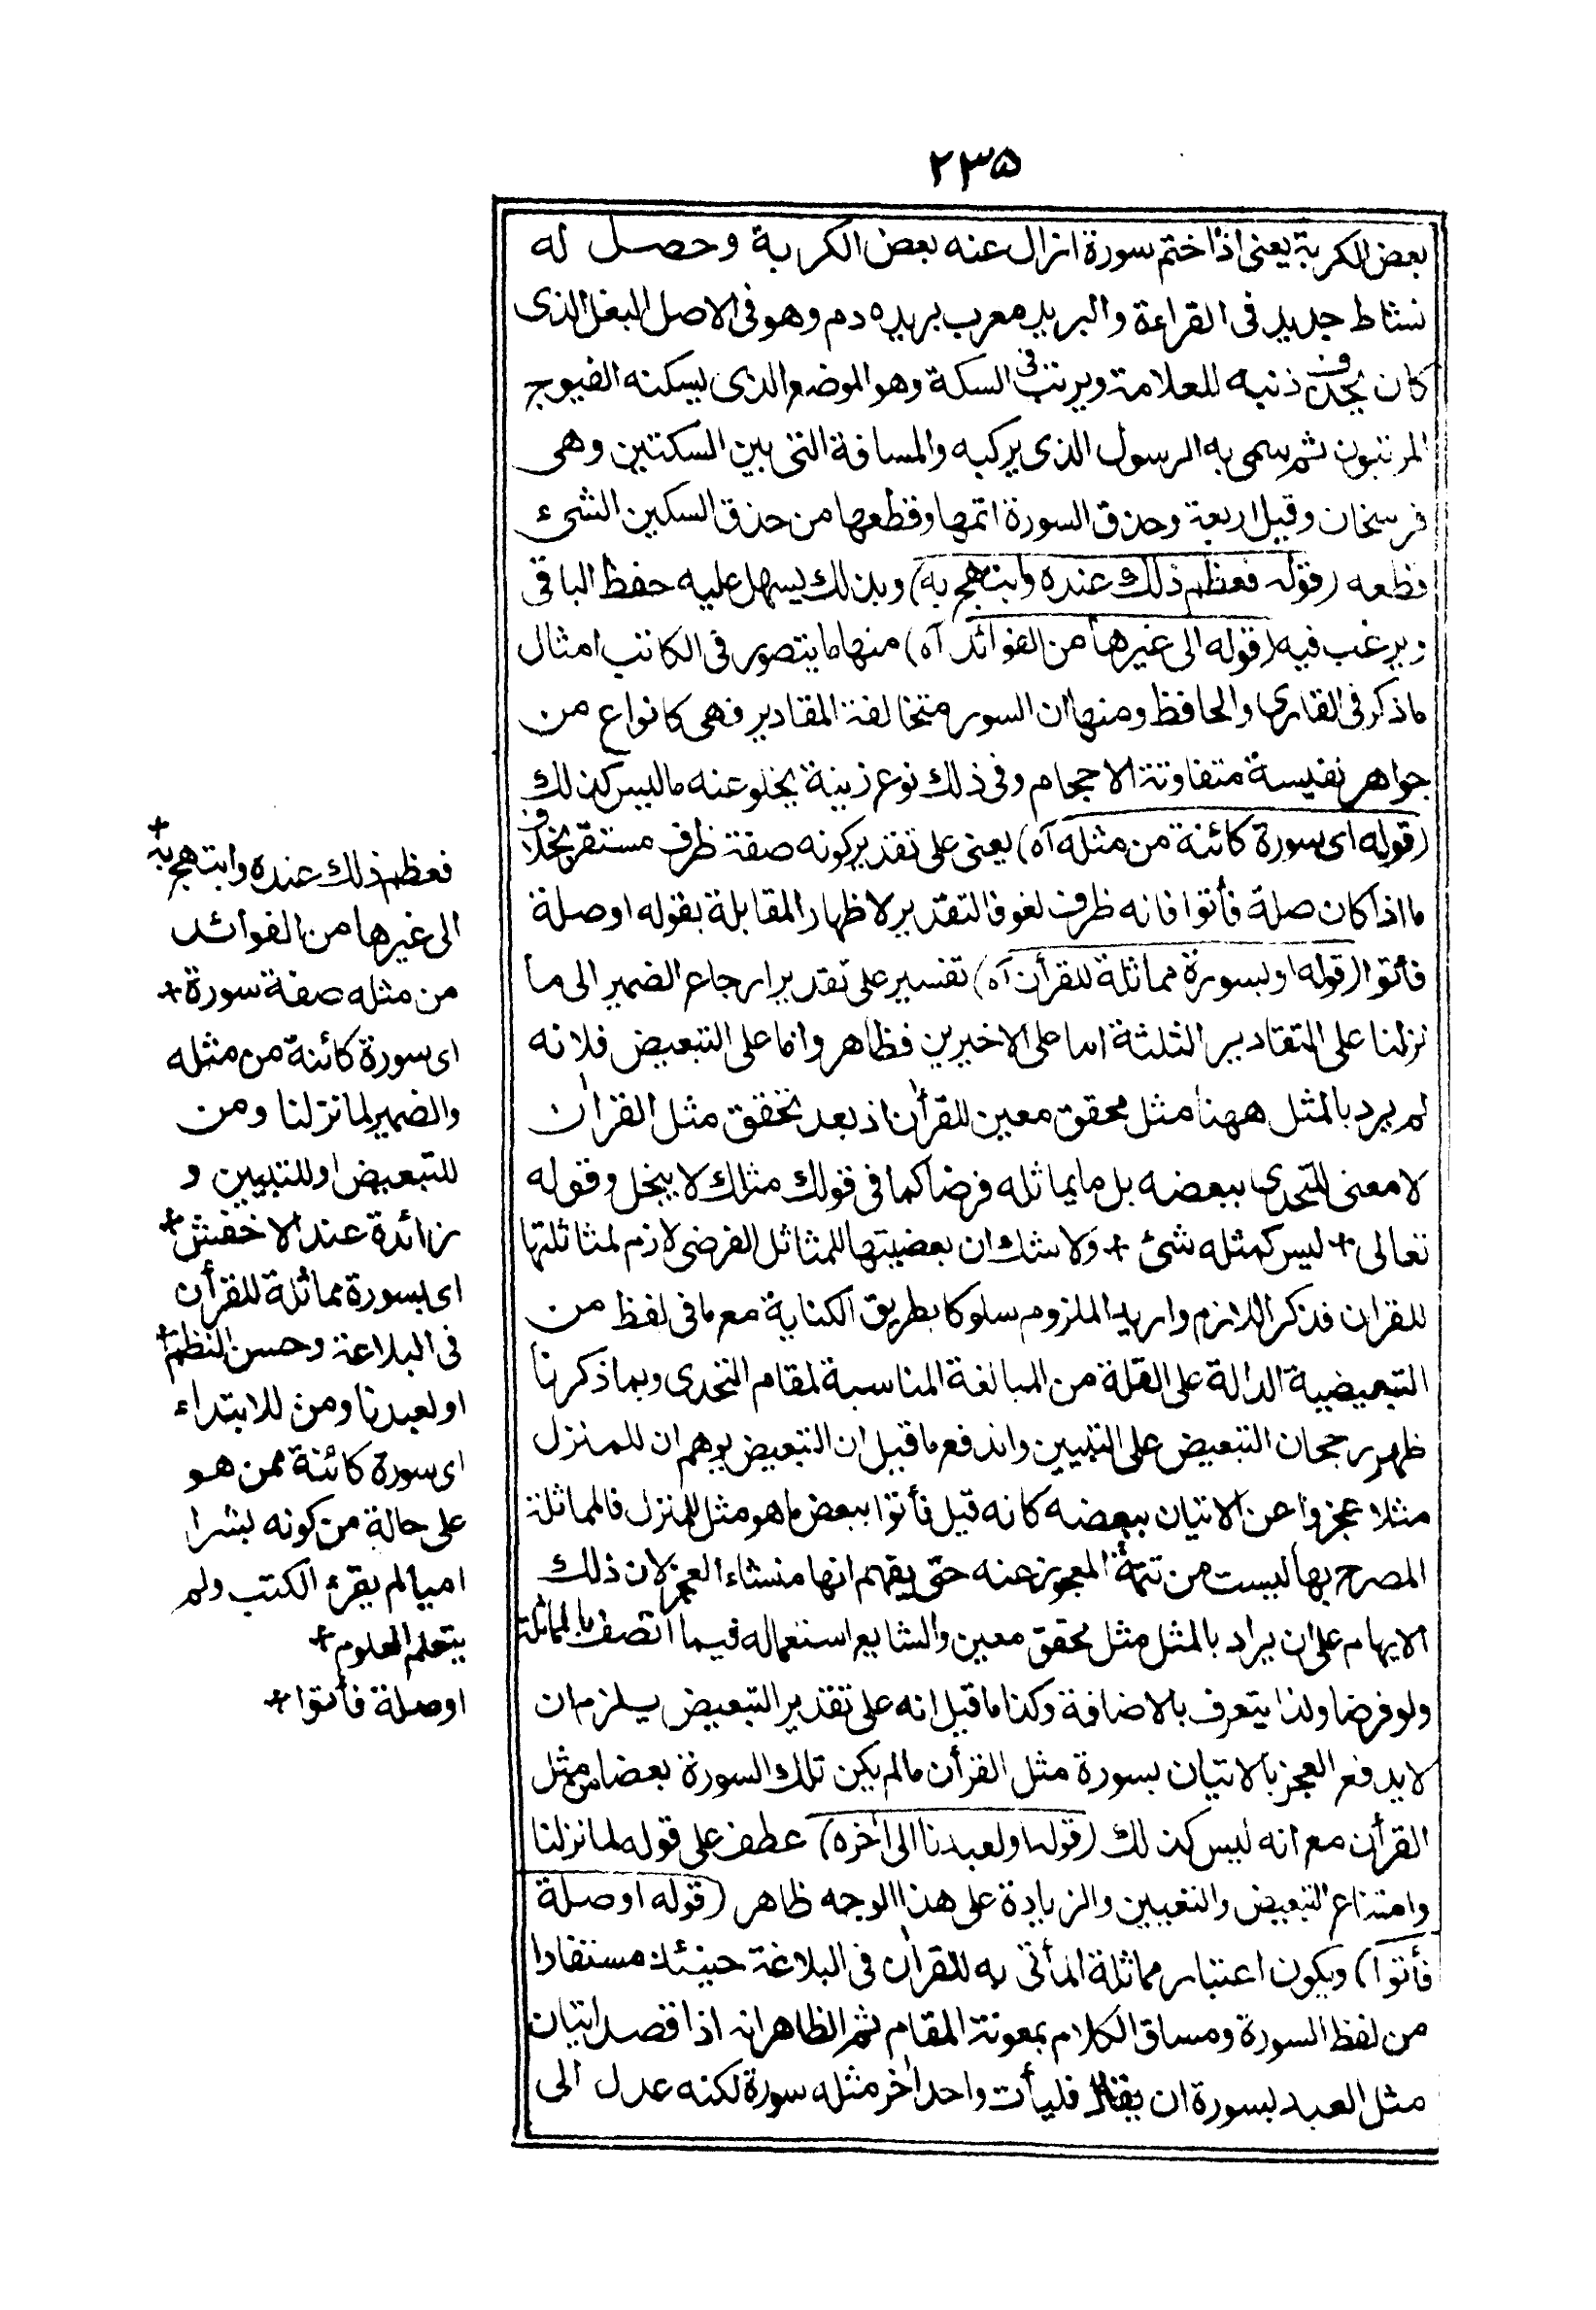 ٢٣٥
بعض الكربة يعنى اذا ختم سورة ازال عنه بعض الكربة وحصل له
نشاط جديد فى القراءة والبريد معرب بريده دم وهو فى الاصل البغل الذى
كان يحذف ذنبه للعلامة ويرتب فى السكة وهو الموضع الذى يسكنه الفيوج
المرتبون ثم سمى به الرسول الذى يركبه والمسافة التى بين السكتين وهى
فرسخان وقيل اربعة وحذق السورة اتمها وقطعها من حذق السكين الشىء
قطعه (قوله فعظم ذلك عنده وابتهج به) وبذلك يسهل عليه حفظ الباقى
ويرغب فيه (قوله الى غيرها من الفوائد آه) منها ما يتصور فى الكاتب امثال
ما ذكر فى القارى والحافظ ومنها ان السور متخالفة المقادير فهى كانواع من
جواهر نفيسة متفاوتة الاحجام وفى ذلك نوع زينة يخلو عنه ما ليس كذلك
(قوله اى سورة كائنة من مثله آه) يعنى على تقدير كونه صفة ظرف مستقر بخلاف
ما اذا كان صلة فأتوا فانه ظرف لغو فالتقدير لاظهار المقابلة بقوله او صلة
فأتوا (قوله او بسورة مماثلة للقرأن آه) تفسير على تقدير ارجاع الضمير الى ما
نزلنا على التقادير الثلثة اما على الاخيرين فظاهر واما على التبعيض فلانه
لم يرد بالمثل ههنا مثل محقق معين للقرأن اذ بعد تحقق مثل القران
لا معنى للتحدى ببعضه بل ما يماثله فرضا كما فى قولك مثلك لا يبخل وقوله
تعالى + ليس كمثله شئ + ولا شك ان بعضيتها للمماثل الفرضى لازم لمماثلتها
للقران فذكر اللازم واريد الملزوم سلوكا بطريق الكناية مع ما فى لفظ من
التبعيضية الدالة على القلة من المبالغة المناسبة لمقام التحدى وبما ذكرنا
ظهر رجحان التبعيض على التبيين واندفع ما قيل ان التبعيض يوهم ان للمنزل
مثلا عجزوا عن الاتيان ببعضه كانه قيل فأتوا ببعض ما هو مثل للمنزل فالمماثلة
المصرح بها ليست من تتمة المعجوز عنه حتى يفهم انها منشاء العجز لان ذلك
الايهام على ان يراد بالمثل مثل محقق معين والشايع استعماله فيما اتصف بالمماثلة
ولو فرضا ولذا يتعرف بالاضافة وكذا ما قيل انه على تقدير التبعيض يلزم ان
لا يدفع العجز بالاتيان بسورة مثل القرأن ما لم يكن تلك السورة بعضا من مثل
القرأن مع انه ليس كذلك (قوله او لعبدنا الى أخره) عطف على قوله لما نزلنا
وامتناع التبعيض والتبيين والزيادة على هذا الوجه ظاهر (قوله او صلة
فأتوا) ويكون اعتبار مماثلة المأتى به للقران فى البلاغة حينئذ مستفادا
من لفظ السورة ومساق الكلام بمعونة المقام ثم الظاهر انه اذا قصد اتيان
مثل العبد بسورة ان يقال فليأت واحد أخر مثله سورة لكنه عدل الى
فعظم ذلك عنده وابتهج به +
الى غيرها من الفوائد
من مثله صفة سورة +
اى سورة كائنة من مثله
والضمير لما نزلنا ومن
للتبعيض او للتبيين و
زائدة عند الاخفش +
اى بسورة مماثلة للقرأن
فى البلاغة وحسن النظم +
او لعبدنا ومن للابتداء
اى سورة كائنة ممن هو
على حالة من كونه بشرا
اميا لم يقرء الكتب ولم
يتعلم العلوم +
او صلة فأتوا +